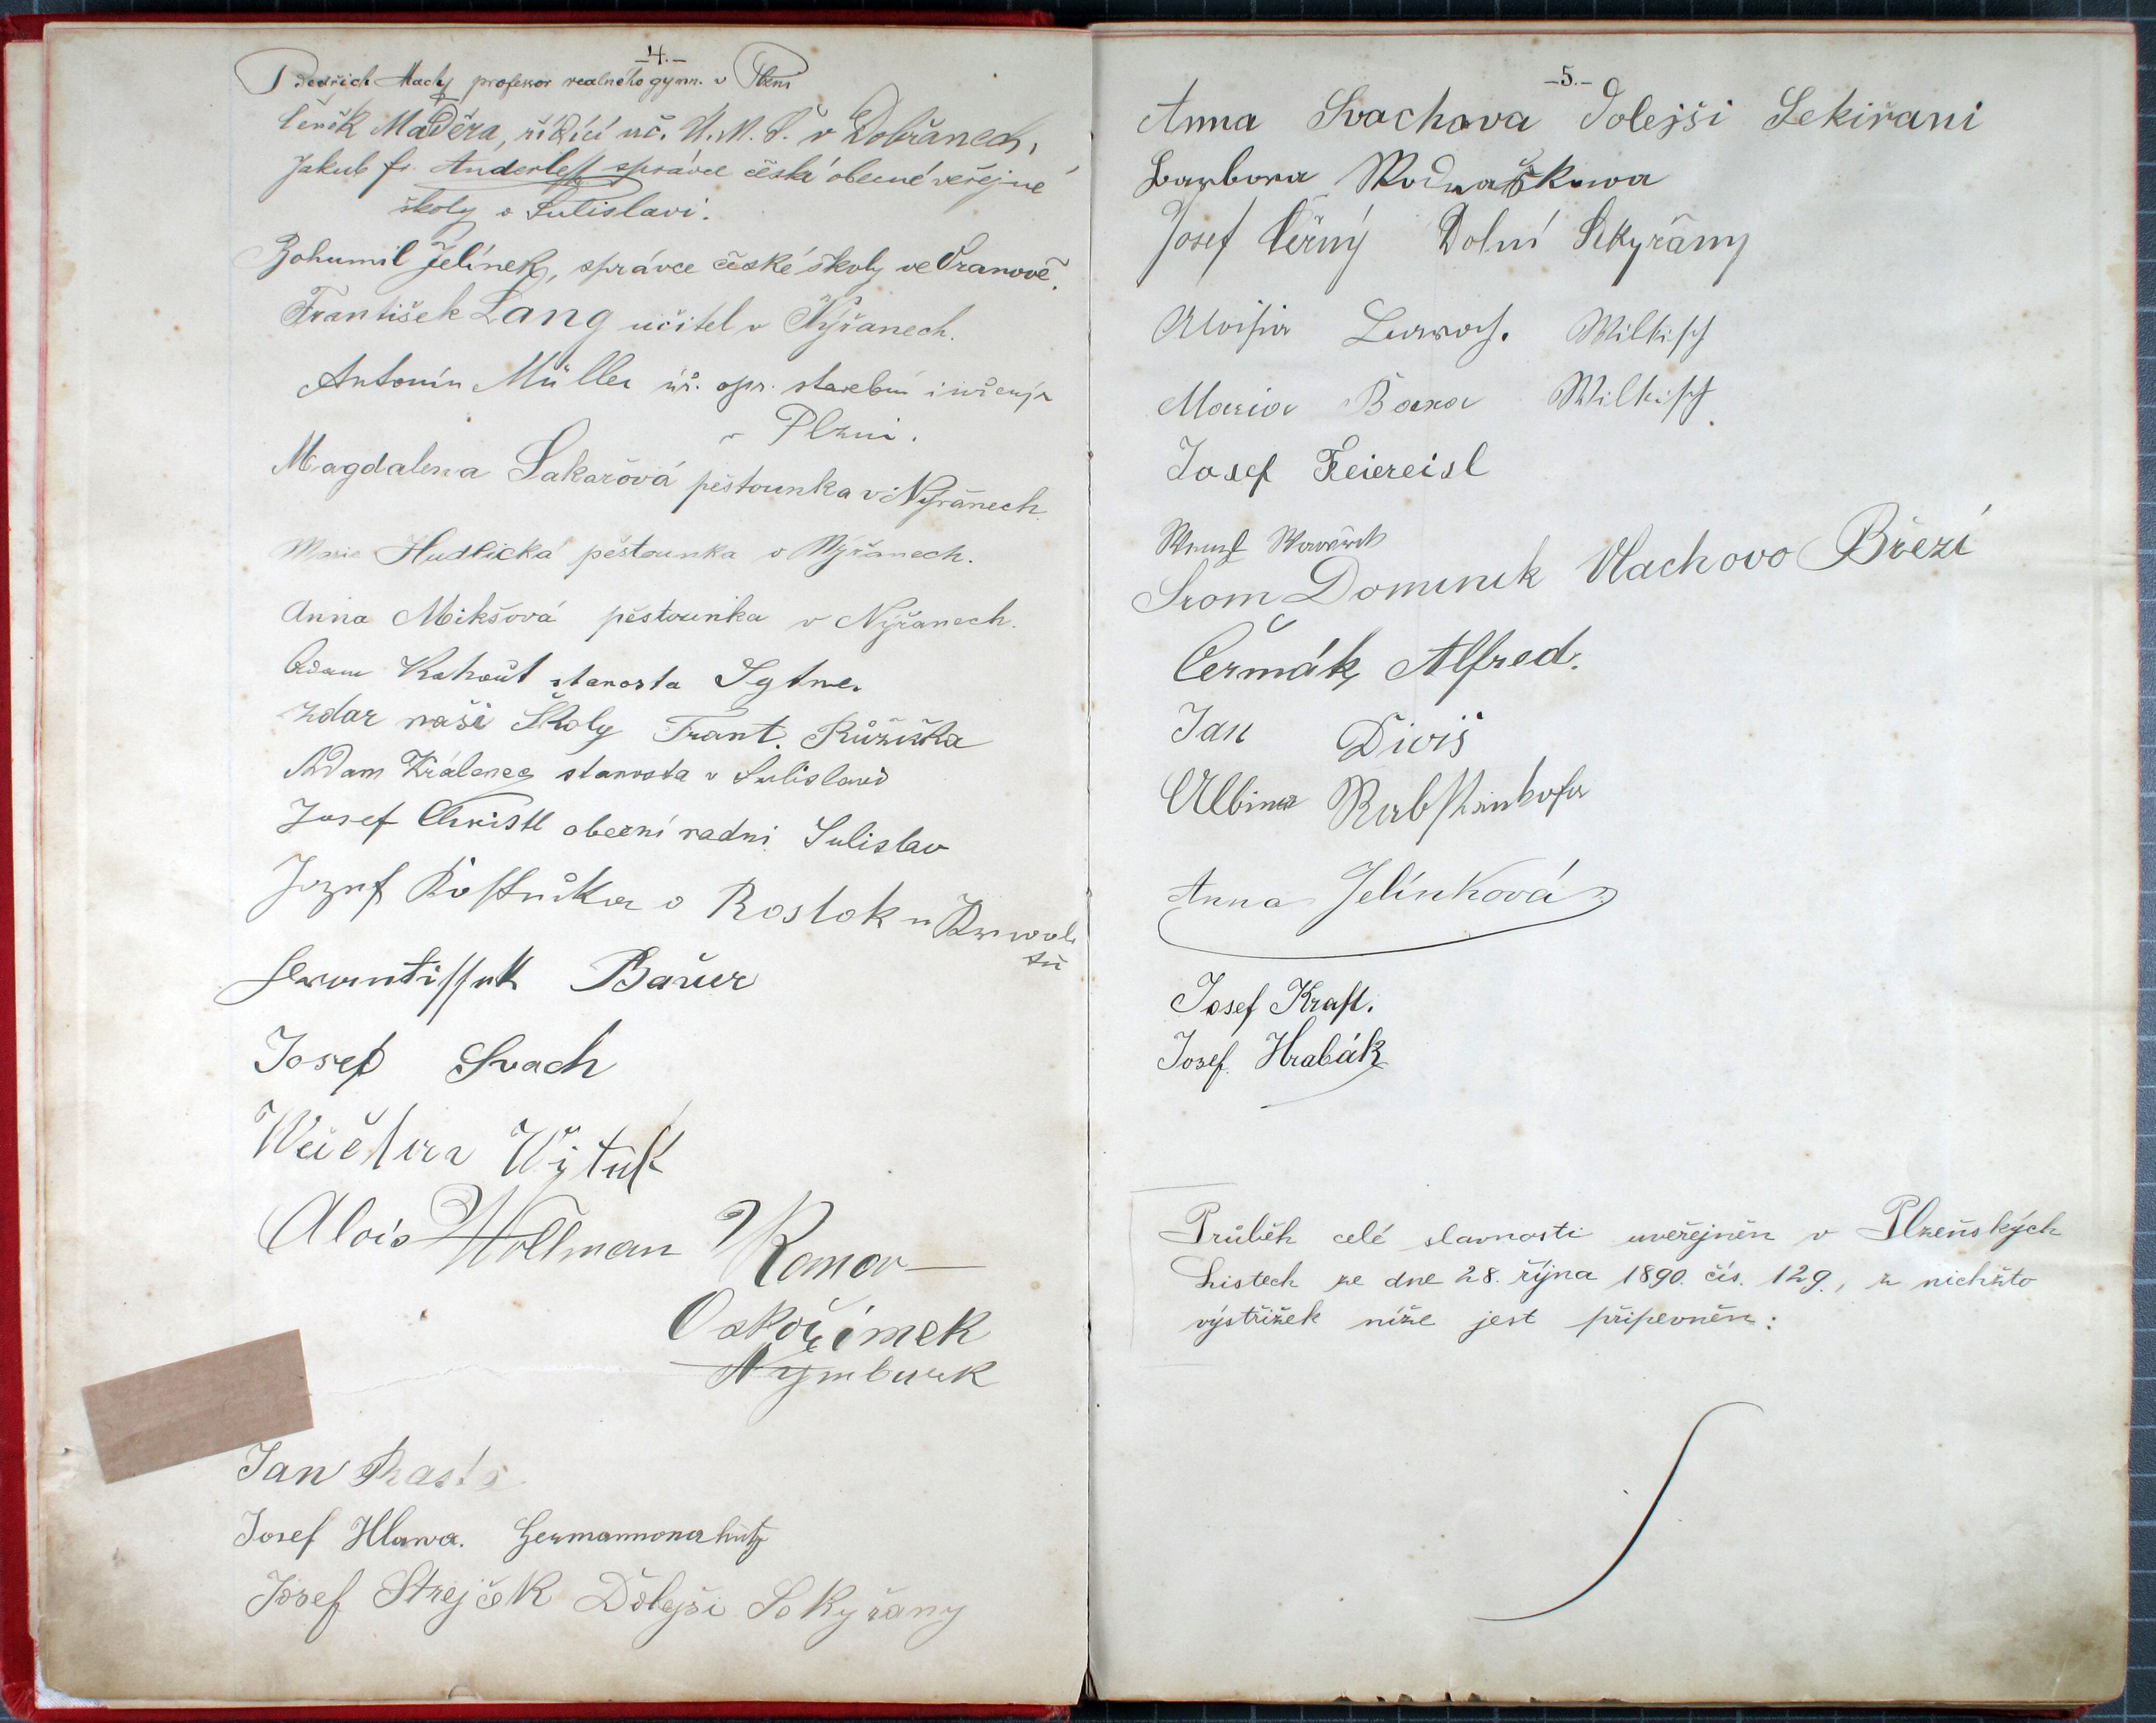 -4.-
Bedřich Machý professor realného gymn. v Plzni
Čeněk Maděra, řídící uč. Ú.M.Š. v Dobřanech,
Jakub fr. Anderle správce české obecné veřejné
školy v Sulislavi.
Bohumil Jelínek, správce české školy ve Vranově.
František Lang učitel v Nýřanech.
Antonín Müller úř. opr. stavební inženýr
v Plzni.
Magdalena Sakařová pěstounka v Nýřanech
Marie Hudlická pěstounka v Nýřanech.
Anna Mikšová pěstounka v Nýřanech.
Adam Kohout starosta
zdar naší Školy Frant. Růžička
Adam Králenec starosta v Sulislavi
Josef Christl obecní radní Sulislav
Jozef Košťnika o Rostok u
Frantissek Bauer
Josef Svach
Alois Wollman
Nymburk
Jan
Josef Hlawa. Hermannova hutě
Josef Strejček Dolejši Sekyřany
-5.-
Anna Svachova Dolejši Sekiřani
Barbora Wodnařkowa
Josef Černý Dolní Sekyřany
Aloisia Wilkisch
Maria Bara Wilkisch
Josef Feiereisl
Srom Dominik Vlachovo Březí
Čermák Alfred.
Jan Diviš
Albina Rabsteinhofer
Anna Jelínková
Josef Kraft.
Josef Hrabák
Průběh celé slavnosti uveřejněn v Plzeňských
Listech ze dne 28. října 1890. čís. 129., z nichžto
výstřižek níže jest připevněn: